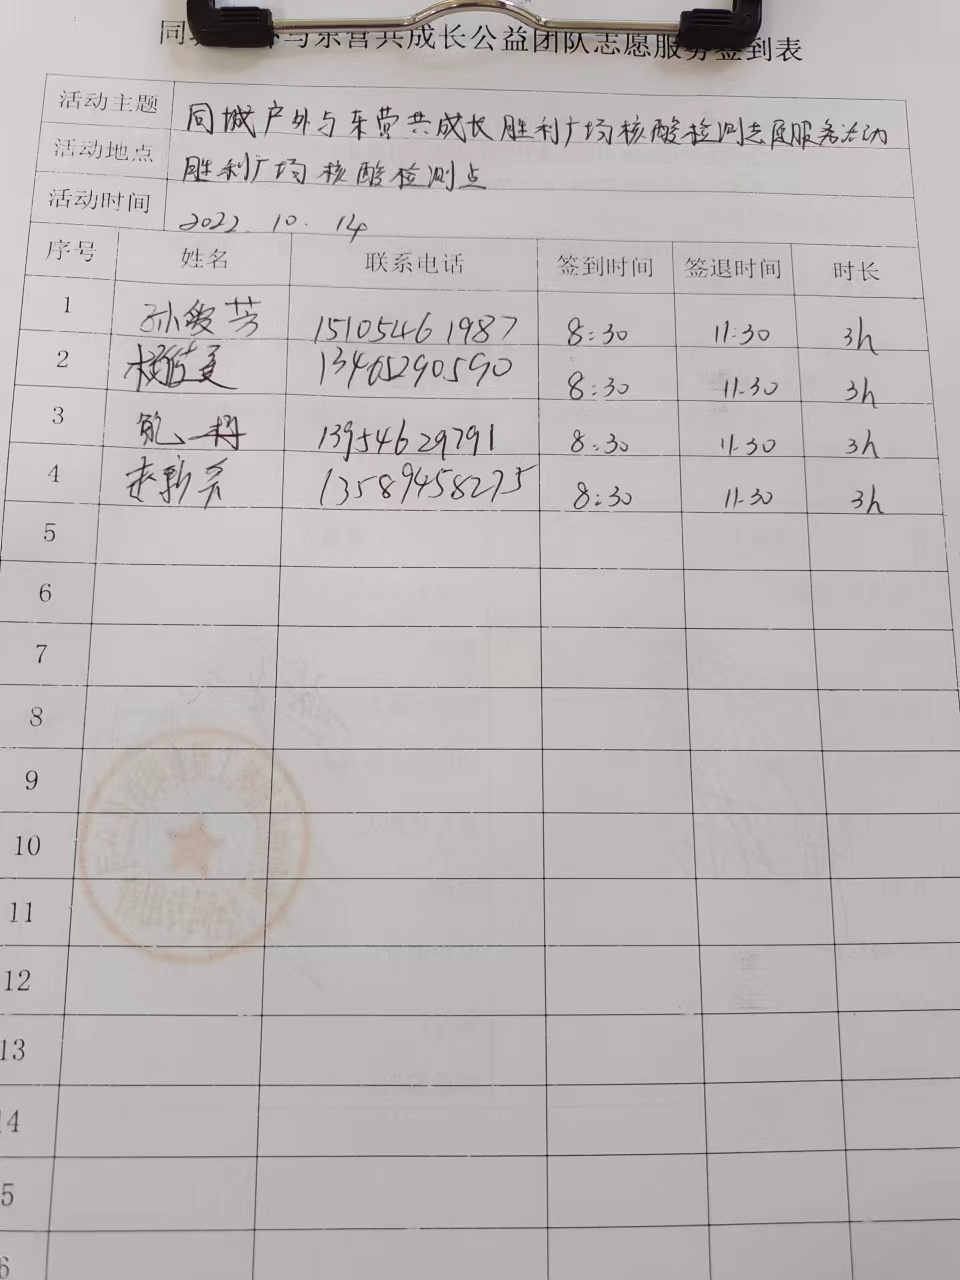 同城户外与东营共成长公益团队志愿服务签到表
活动主题 同城户外与东营共成长胜利广场核酸检测志愿服务活动
活动地点 胜利广场核酸检测点
活动时间 2022.10.14
序号 姓名 联系电话 签到时间 签退时间 时长
1 孙俊芳 15105461987 8:30 11:30 3h
2 13465290590 8:30 11:30 3h
3 13954629791 8:30 11:30 3h
4 赵新 13589458275 8:30 11:30 3h
5
6
7
8
9
10
11
12
13
14
5
6